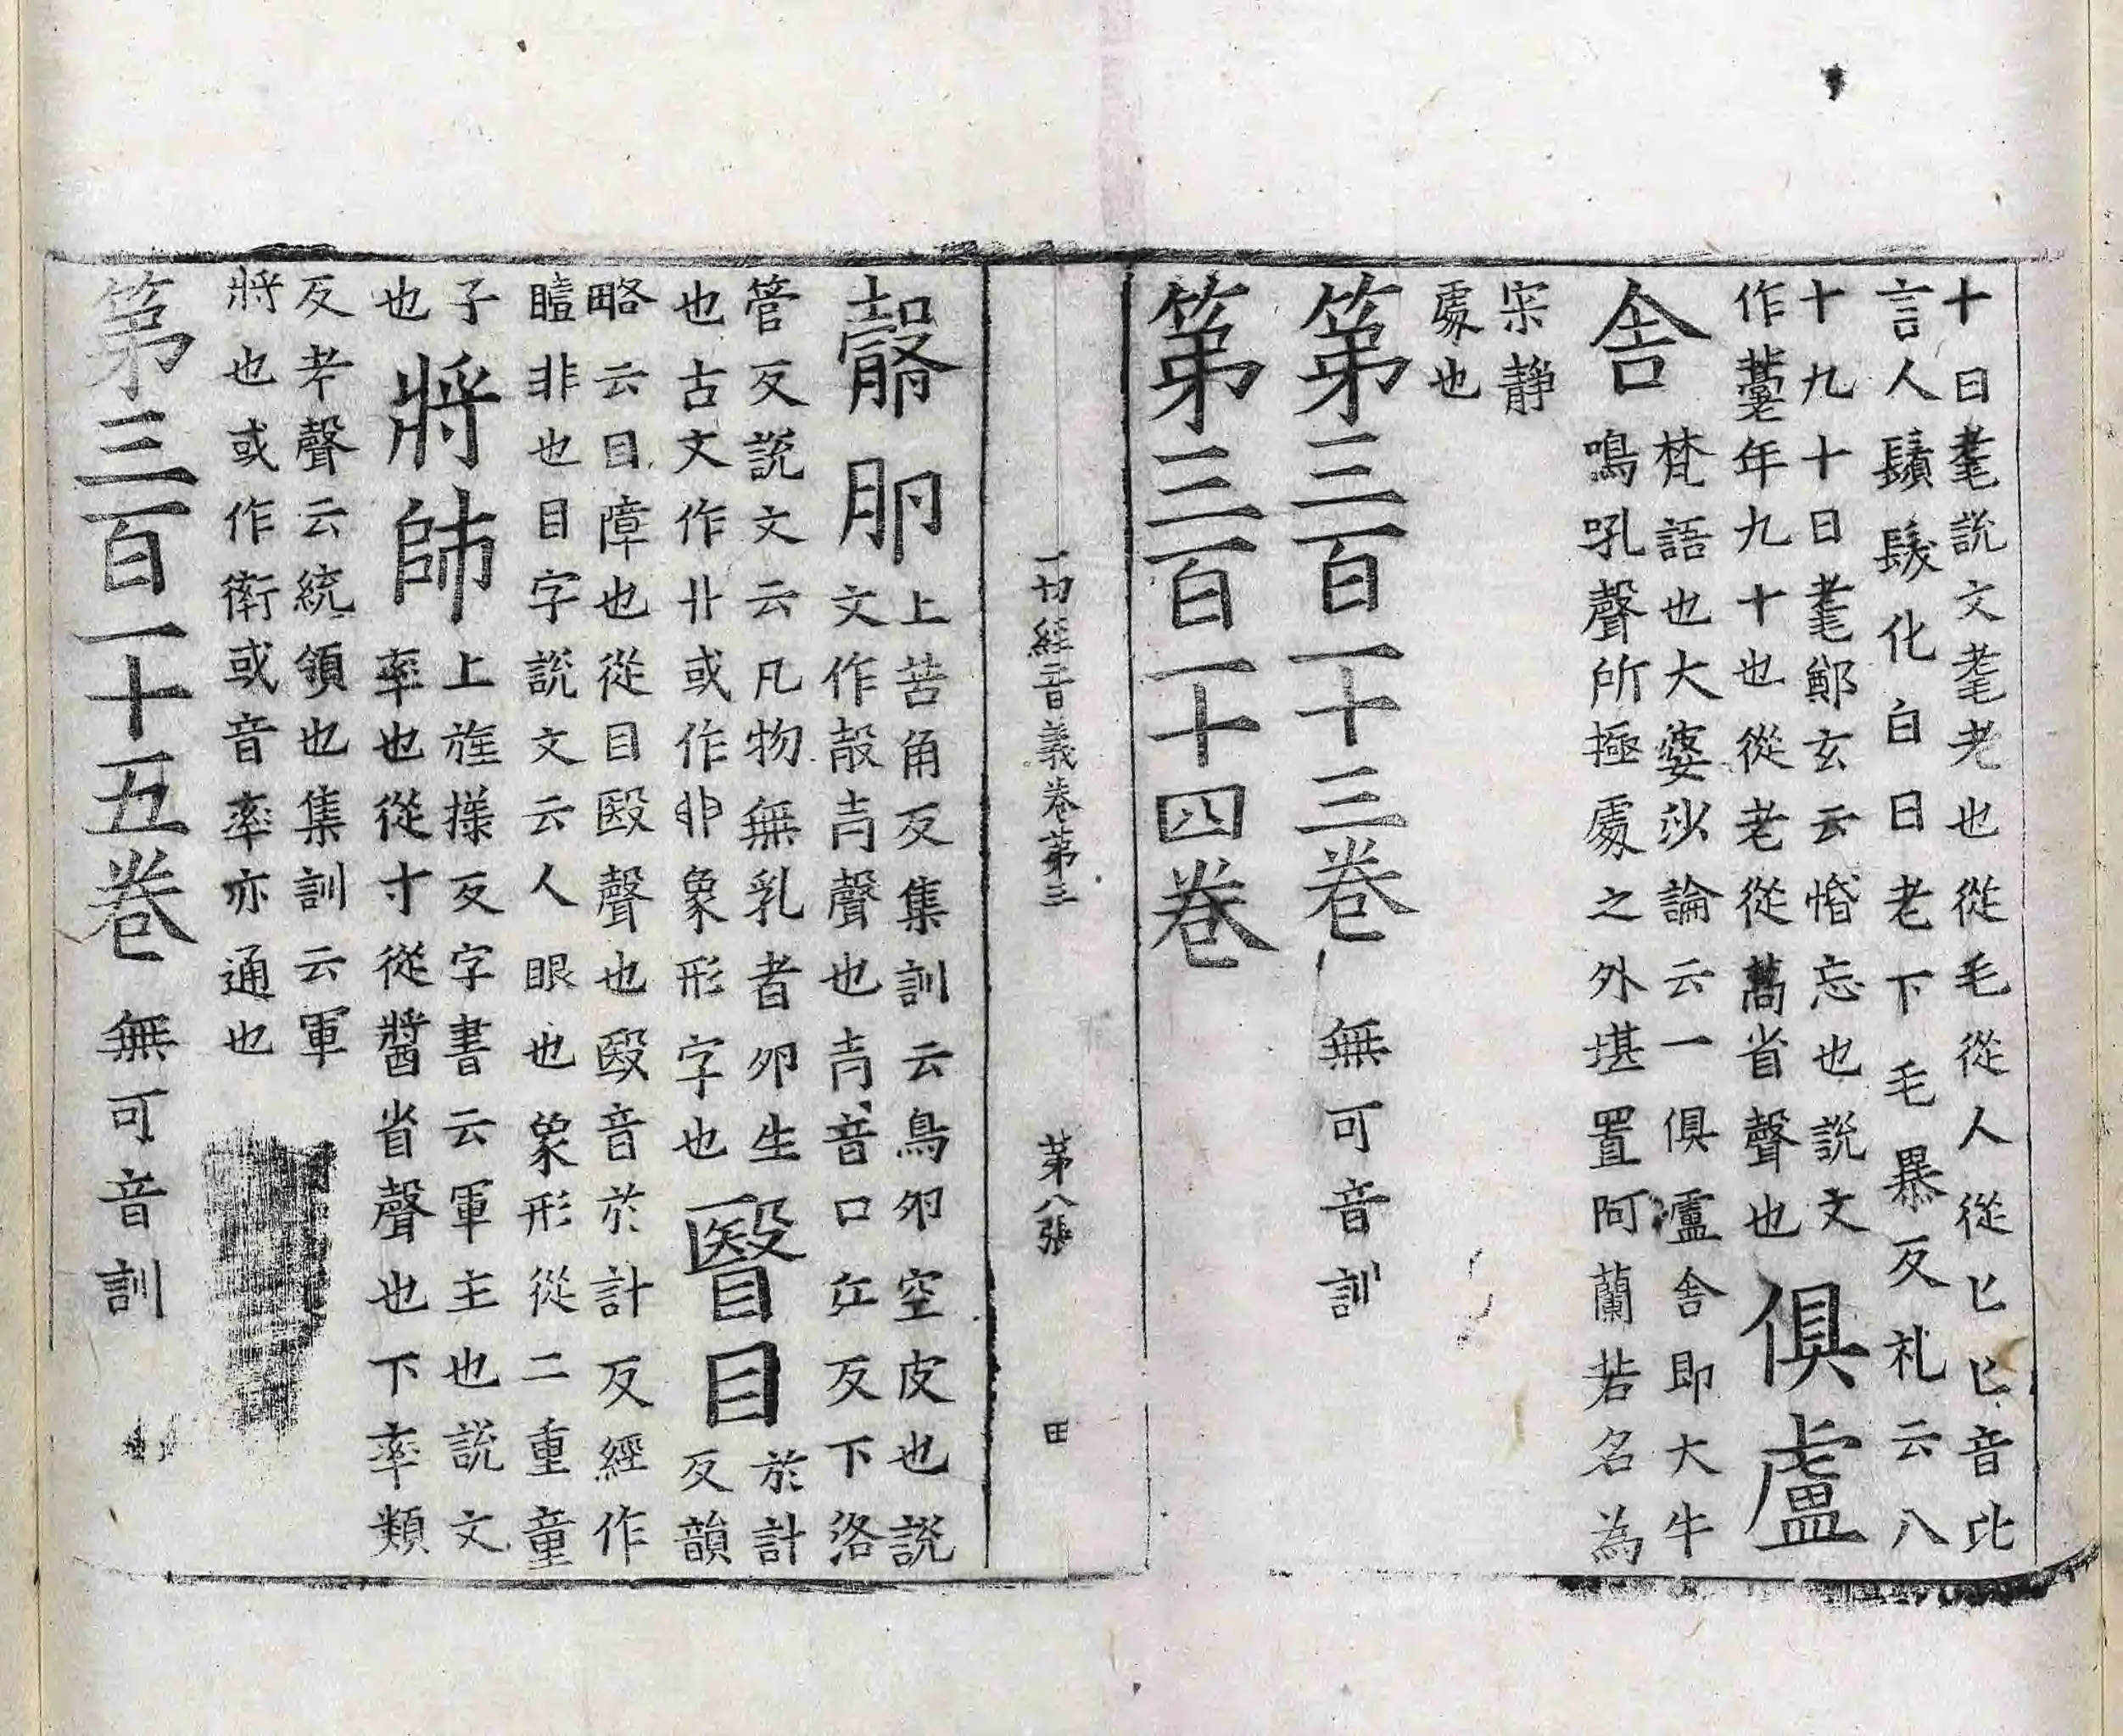 十曰耄說文耄老也從毛從人從匕匕音比
言人鬚髮化白曰老下毛暴反礼云八
十九十曰耄鄭玄云惛忘也說文
作𦽄年九十也從老從蒿省聲也
俱盧
舍
梵語也大婆沙論云一俱盧舍即大牛
鳴吼聲所極處之外堪置阿蘭若名為
寀靜
處也
第三百一十三卷 無可音訓
第三百一十四卷
一切經音義卷第三 第八張 田
㲉卵
上苦角反集訓云鳥卵空皮也說
文作㱿声聲也声音口江反下洛
管反說文云凡物無乳者卵生
也古文作卝或作卵象形字也
瞖目
於計
反韻
略云目障也從目殹聲也殹音於計反經作
曀非也目字說文云人眼也象形從二重童
子
也
將帥
上旌樣反字書云軍主也說文
率也從寸從醬省聲也下率類
反考聲云統領也集訓云軍
將也或作衛或音率亦通也
第三百一十五卷 無可音訓